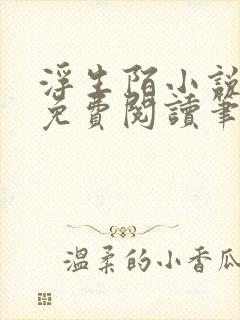 浮生陌小說
免費閱讀筆
溫柔的小香瓜